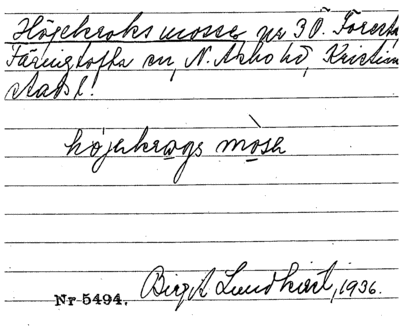 Höjekroks mosse nr 3 Ö. Forestad
Färingtofta sn, N. Åsbo hd, Kristian
stads l.
höjekrogs mòsa
Nr 5494. Birgit Lundkvist, 1936.